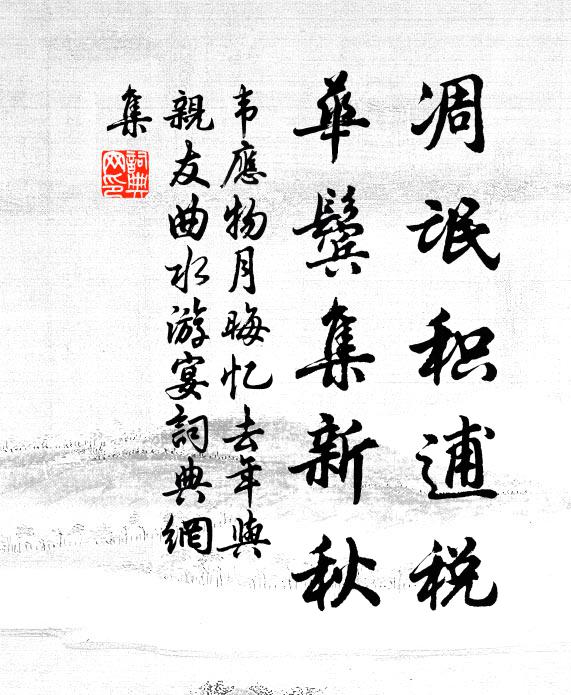 凋氓积逋税
華鬓集新秋
韦應物月晦忆去年與
親友曲水游宴詞典網
集
詞典网印